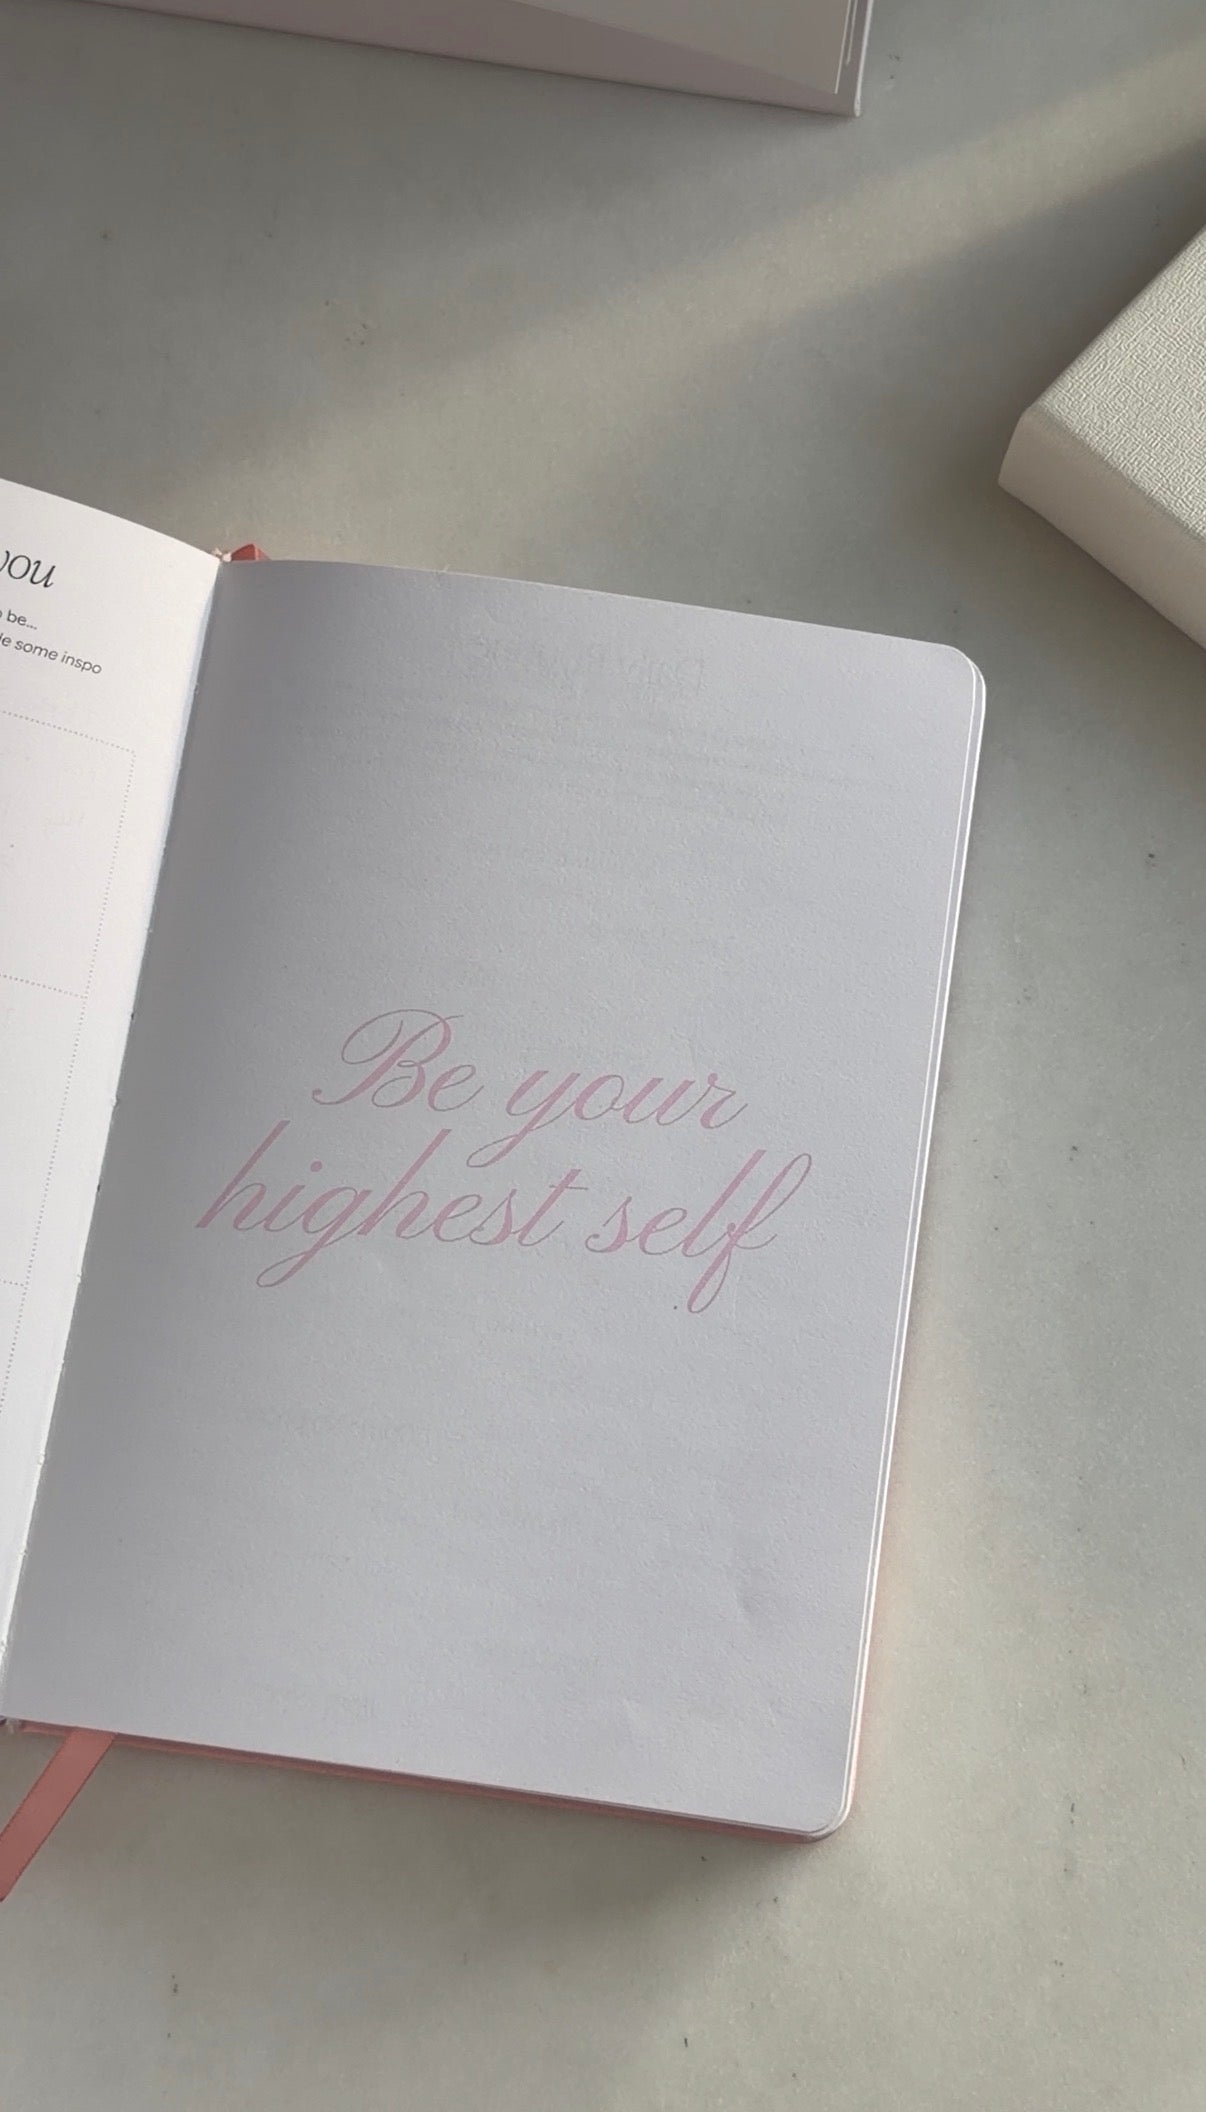 you
be...
some inspo
Be your
highest self